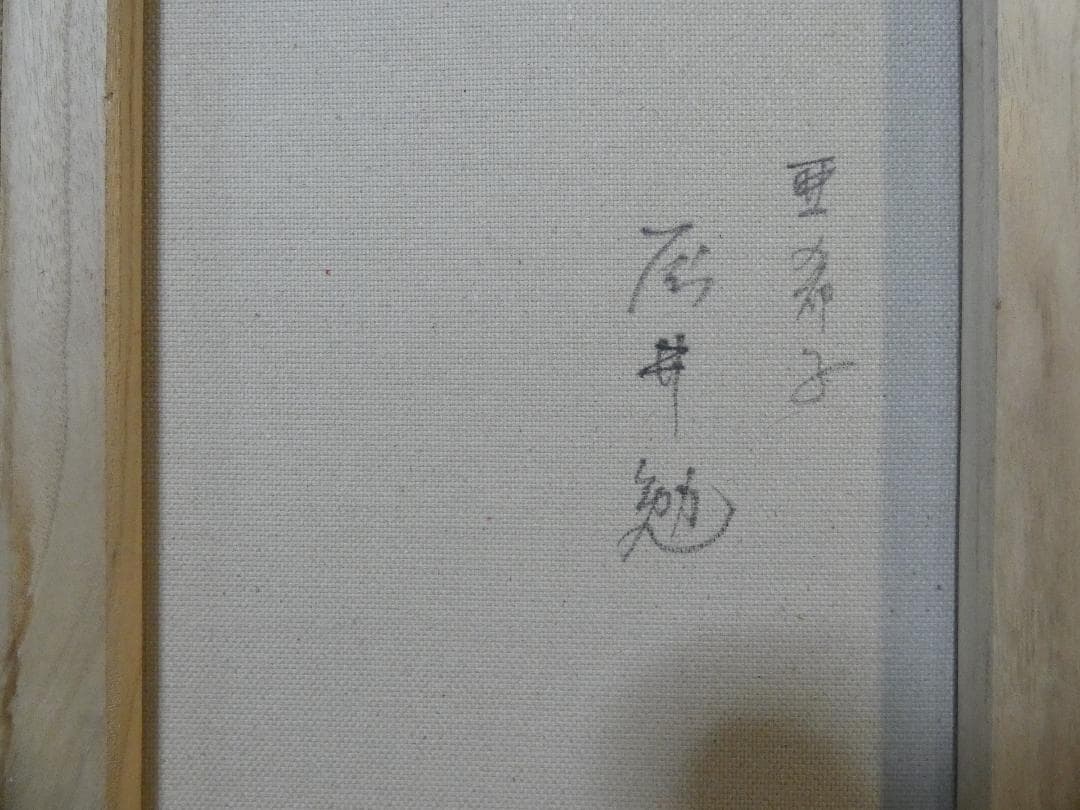 亜希子
石井勉